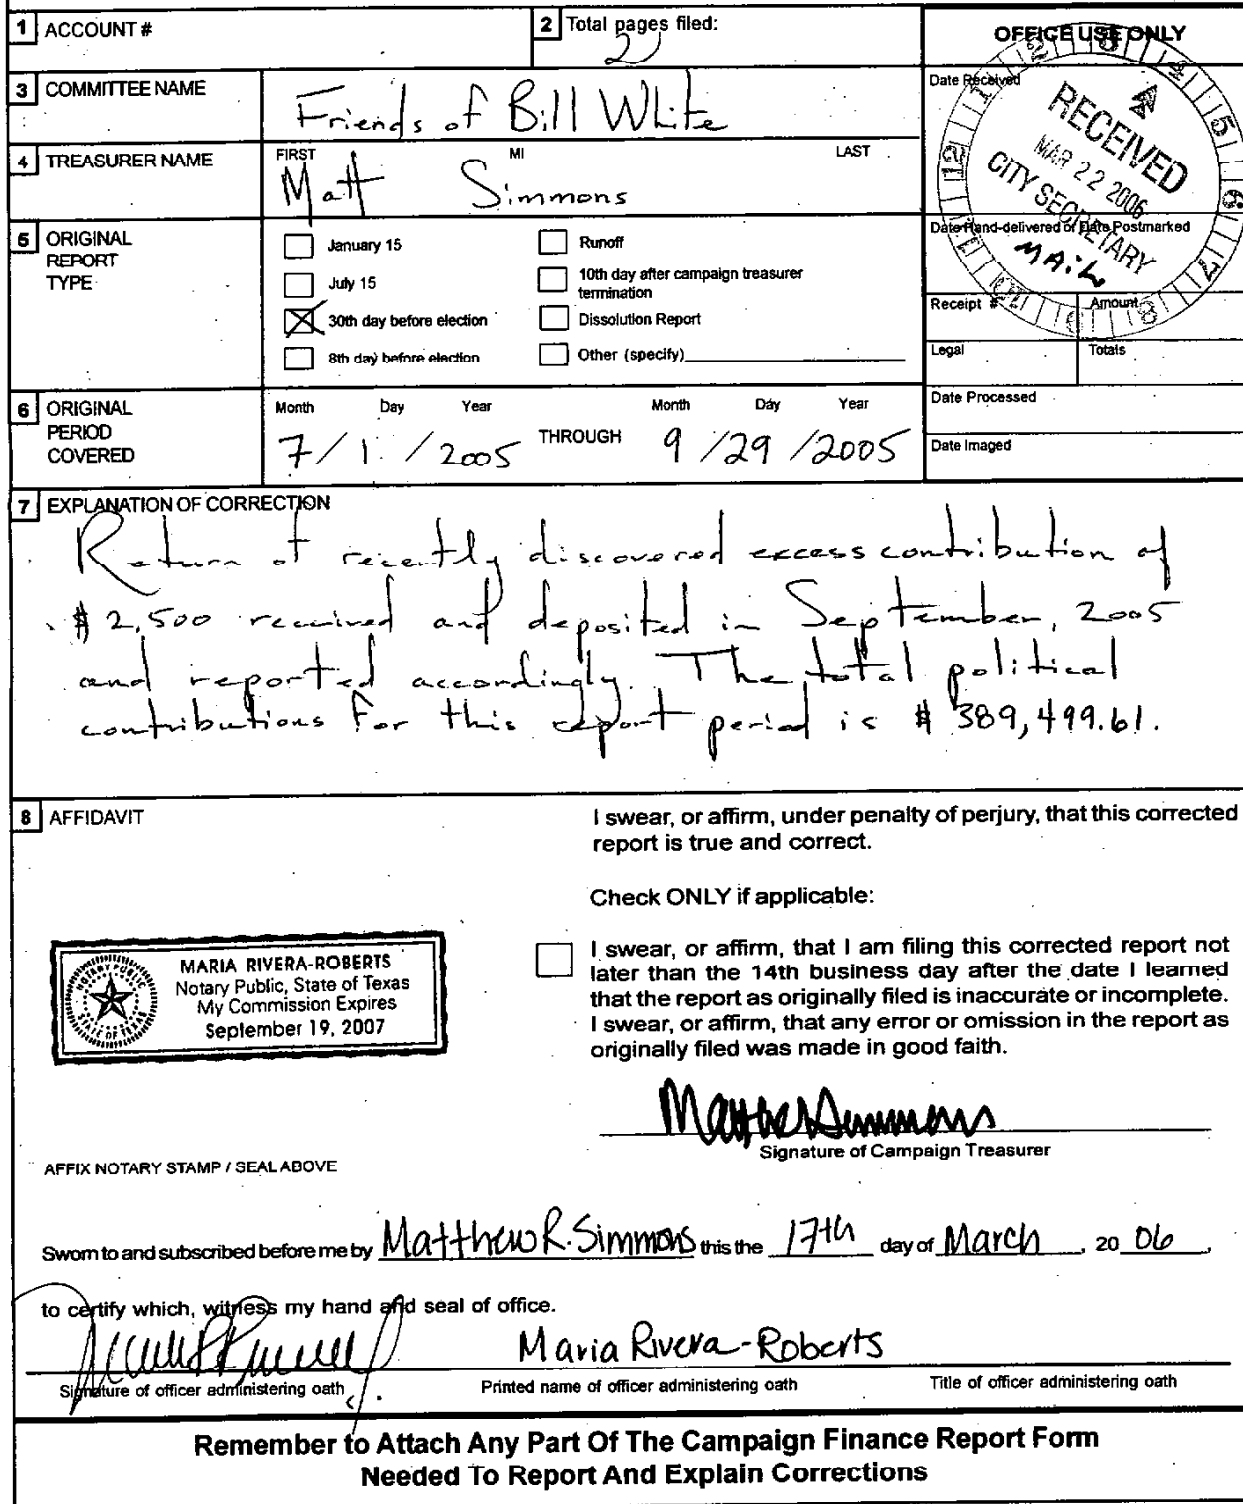 1 ACCOUNT #
2 Total pages filed:
2
OFFICE USE ONLY
3 COMMITTEE NAME
Friends of Bill White
Date Received
RECEIVED
MAR 22 2006
CITY SECRETARY
1 2 3 4 5 6 7 8 9 10 11 12
4 TREASURER NAME
FIRST MI LAST
Matt Simmons
Date Hand-delivered or Date Postmarked
MAIL
5 ORIGINAL REPORT TYPE
January 15
July 15
30th day before election
8th day before election
Runoff
10th day after campaign treasurer
termination
Dissolution Report
Other (specify)
Receipt # Amount
Legal Totals
Date Processed
Date Imaged
6 ORIGINAL PERIOD COVERED
Month Day Year Month Day Year
7/1/2005 THROUGH 9/29/2005
7 EXPLANATION OF CORRECTION
Return of recently discovered excess contribution of
$ 2,500 received and deposited in September, 2005
and reported accordingly. The total political
contributions for this report period is $ 389,499.61.
8 AFFIDAVIT
I swear, or affirm, under penalty of perjury, that this corrected
report is true and correct.
Check ONLY if applicable:
I swear, or affirm, that I am filing this corrected report not
later than the 14th business day after the date I learned
that the report as originally filed is inaccurate or incomplete.
I swear, or affirm, that any error or omission in the report as
originally filed was made in good faith.
NOTARY PUBLIC
STATE OF TEXAS
MARIA RIVERA-ROBERTS
Notary Public, State of Texas
My Commission Expires
September 19, 2007
Matthew Simmons
Signature of Campaign Treasurer
AFFIX NOTARY STAMP / SEAL ABOVE
Sworn to and subscribed before me by Matthew R. Simmons this the 17th day of March, 20 06,
to certify which, witness my hand and seal of office.
Maria Rivera-Roberts
Signature of officer administering oath Printed name of officer administering oath Title of officer administering oath
Remember to Attach Any Part Of The Campaign Finance Report Form
Needed To Report And Explain Corrections